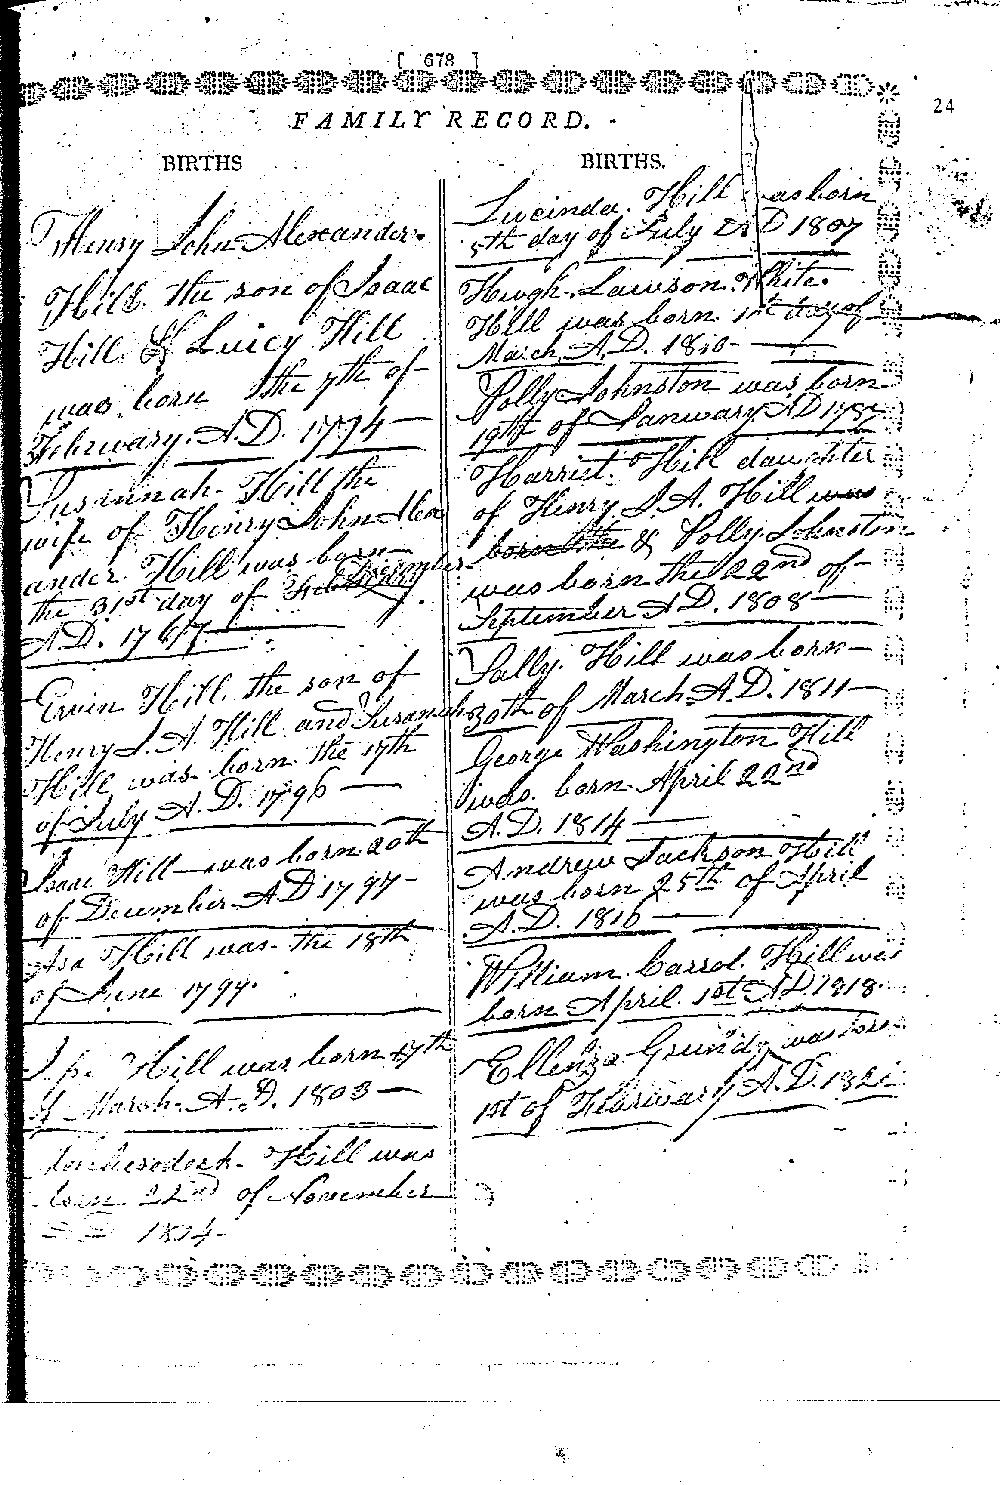 [ 678 ]
24
FAMILY RECORD.
BIRTHS
Henry John Alexander
Hill the son of Isaac
Hill & Luicy Hill
was born the 7th of
February A.D. 1774
Susannah Hill the
wife of Henry John Alex
ander Hill was born
the 31st day of December
A.D. 1767
Ervin Hill the son of
Henry J. A. Hill and Susanah
Hill was born the 17th
of July A.D. 1796
Isaac Hill was born 20th
of December AD 1797
Asa Hill was the 18th
of June 1799.
Hill was born 17th
of March A.D. 1803
Hill was
born 22nd of November
1804
BIRTHS.
Lucinda Hill was born
5th day of July AD 1807
Hugh Lawson White
Hill was born 1st day of
March A.D. 1810
Polly Johnston was born
19th of Januwary AD 1787
Harriet Hill daughter
of Henry J. A. Hill was
born the & Polly Johnston
was born the 22nd of
September A.D. 1808
Sally Hill was born
30th of March A.D. 1811
George Washington Hill
was born April 22nd
A.D. 1814
Andrew Jackson Hill
was born 25th of April
A.D. 1816
William Carrol Hill was
born April 1st A.D. 1818
Ellenza Grundy was born
1st of Febriwary A.D. 182